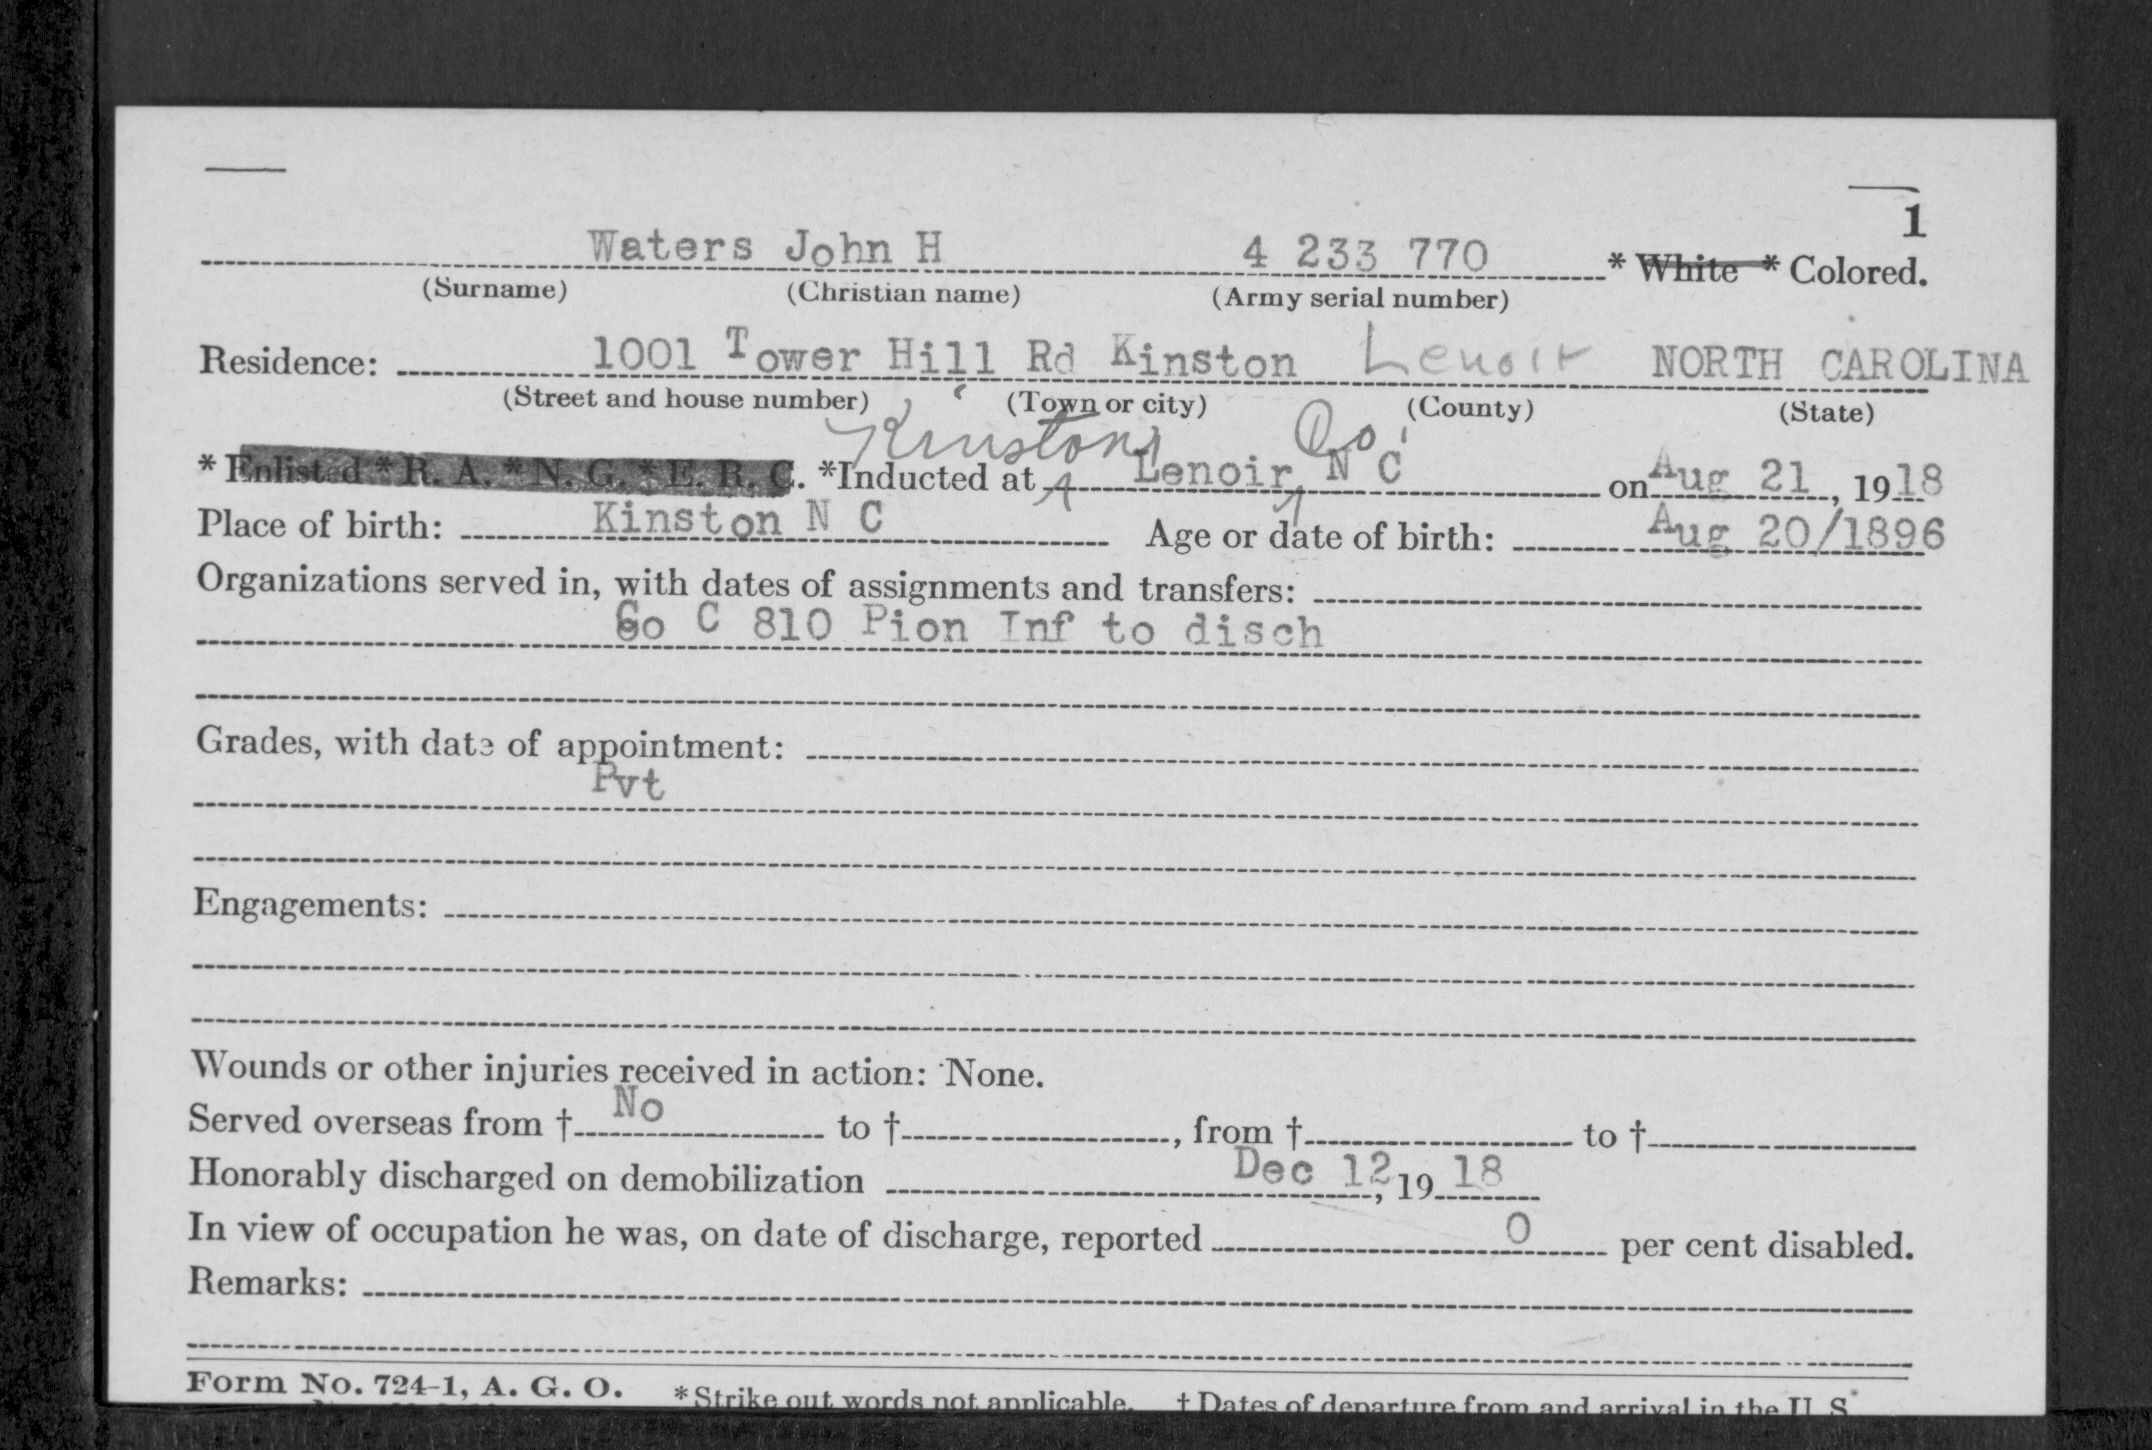 1
Waters John H 4 233 770 * White * Colored.
(Surname) (Christian name) (Army serial number)
Residence: 1001 Tower Hill Rd Kinston Lenoir NORTH CAROLINA
(Street and house number) (Town or city) (County) (State)
Kinston, Co.
* Enlisted * R. A. * N. G. * E. R. C. *Inducted at Lenoir N C on Aug 21, 1918
Place of birth: Kinston N C Age or date of birth: Aug 20/1896
Organizations served in, with dates of assignments and transfers:
Co C 810 Pion Inf to disch
Grades, with date of appointment:
Pvt
Engagements:
Wounds or other injuries received in action: None.
Served overseas from † No to †, from † to †
Honorably discharged on demobilization Dec 12, 19 18
In view of occupation he was, on date of discharge, reported 0 per cent disabled.
Remarks:
Form No. 724-1, A. G. O. * Strike out words not applicable. † Dates of departure from and arrival in the U. S.